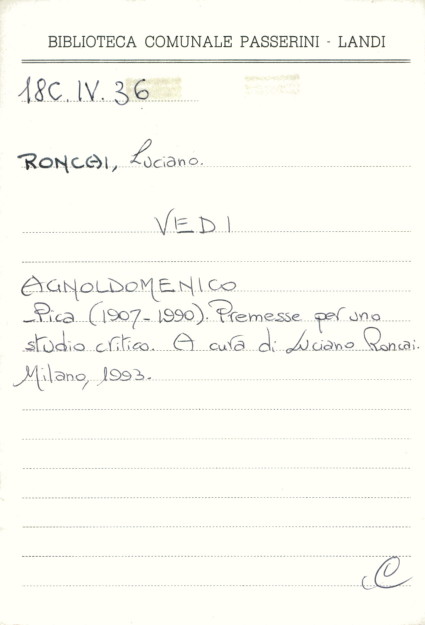 BIBLIOTECA COMUNALE PASSERINI - LANDI
18C.IV.36
RONCHI, Luciano.
VEDI
AGNOLDOMENICO
Pica (1907-1990). Premesse per uno
studio critico. A cura di Luciano Ronchi.
Milano, 1993.
C